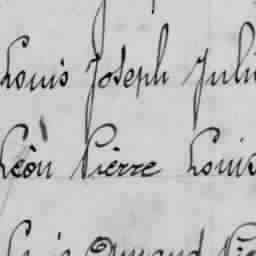 Louis Joseph Juli
Léon Pierre Louis
Amand